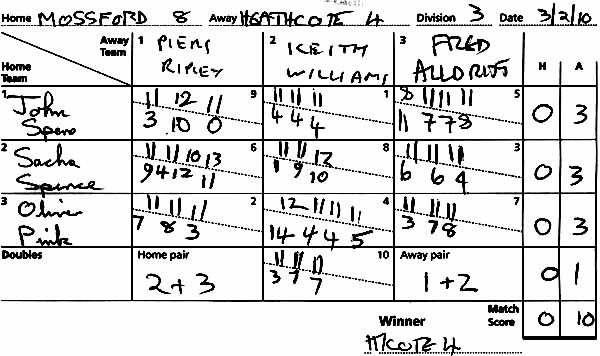 Home MOSSFORD 8 Away HEATHCOTE 4 Division 3 Date 3/2/10
Away Team 1 PIERS RIPLEY 2 KEITH WILLIAMS 3 FRED H A
Home Team
1 John Spero 9 11 12 11 1 11 11 11 5 8 11 11 11 0 3
3 10 0 4 4 4 11 7 7 8
2 Sacha Spence 6 11 11 10 13 8 11 11 12 3 11 11 11 0 3
9 4 12 11 1 9 10 6 6 4
3 Oliver Pink 2 11 11 11 4 12 11 11 11 7 11 11 11 0 3
7 8 3 14 4 4 5 3 7 8
Doubles Home pair 10 11 11 11 Away pair 0 1
2+3 3 7 7 1+2
Winner Match Score 0 10
H'COTE 4